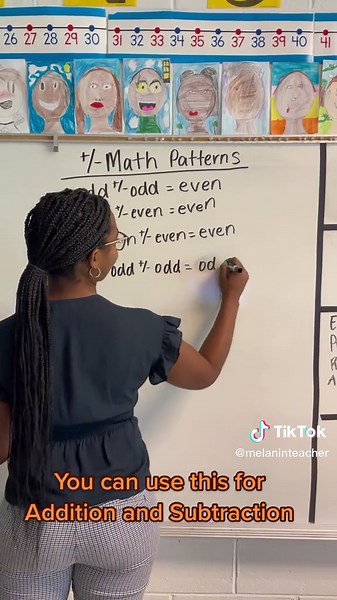 26 27 28 29 30 31 32 33 34 35 36 37 38 39 40 41
+/- Math Patterns
dd +/- odd = even
+/- even = even
n +/- even = even
odd +/- odd = od
TikTok
@melaninteacher
You can use this for
Addition and Subtraction